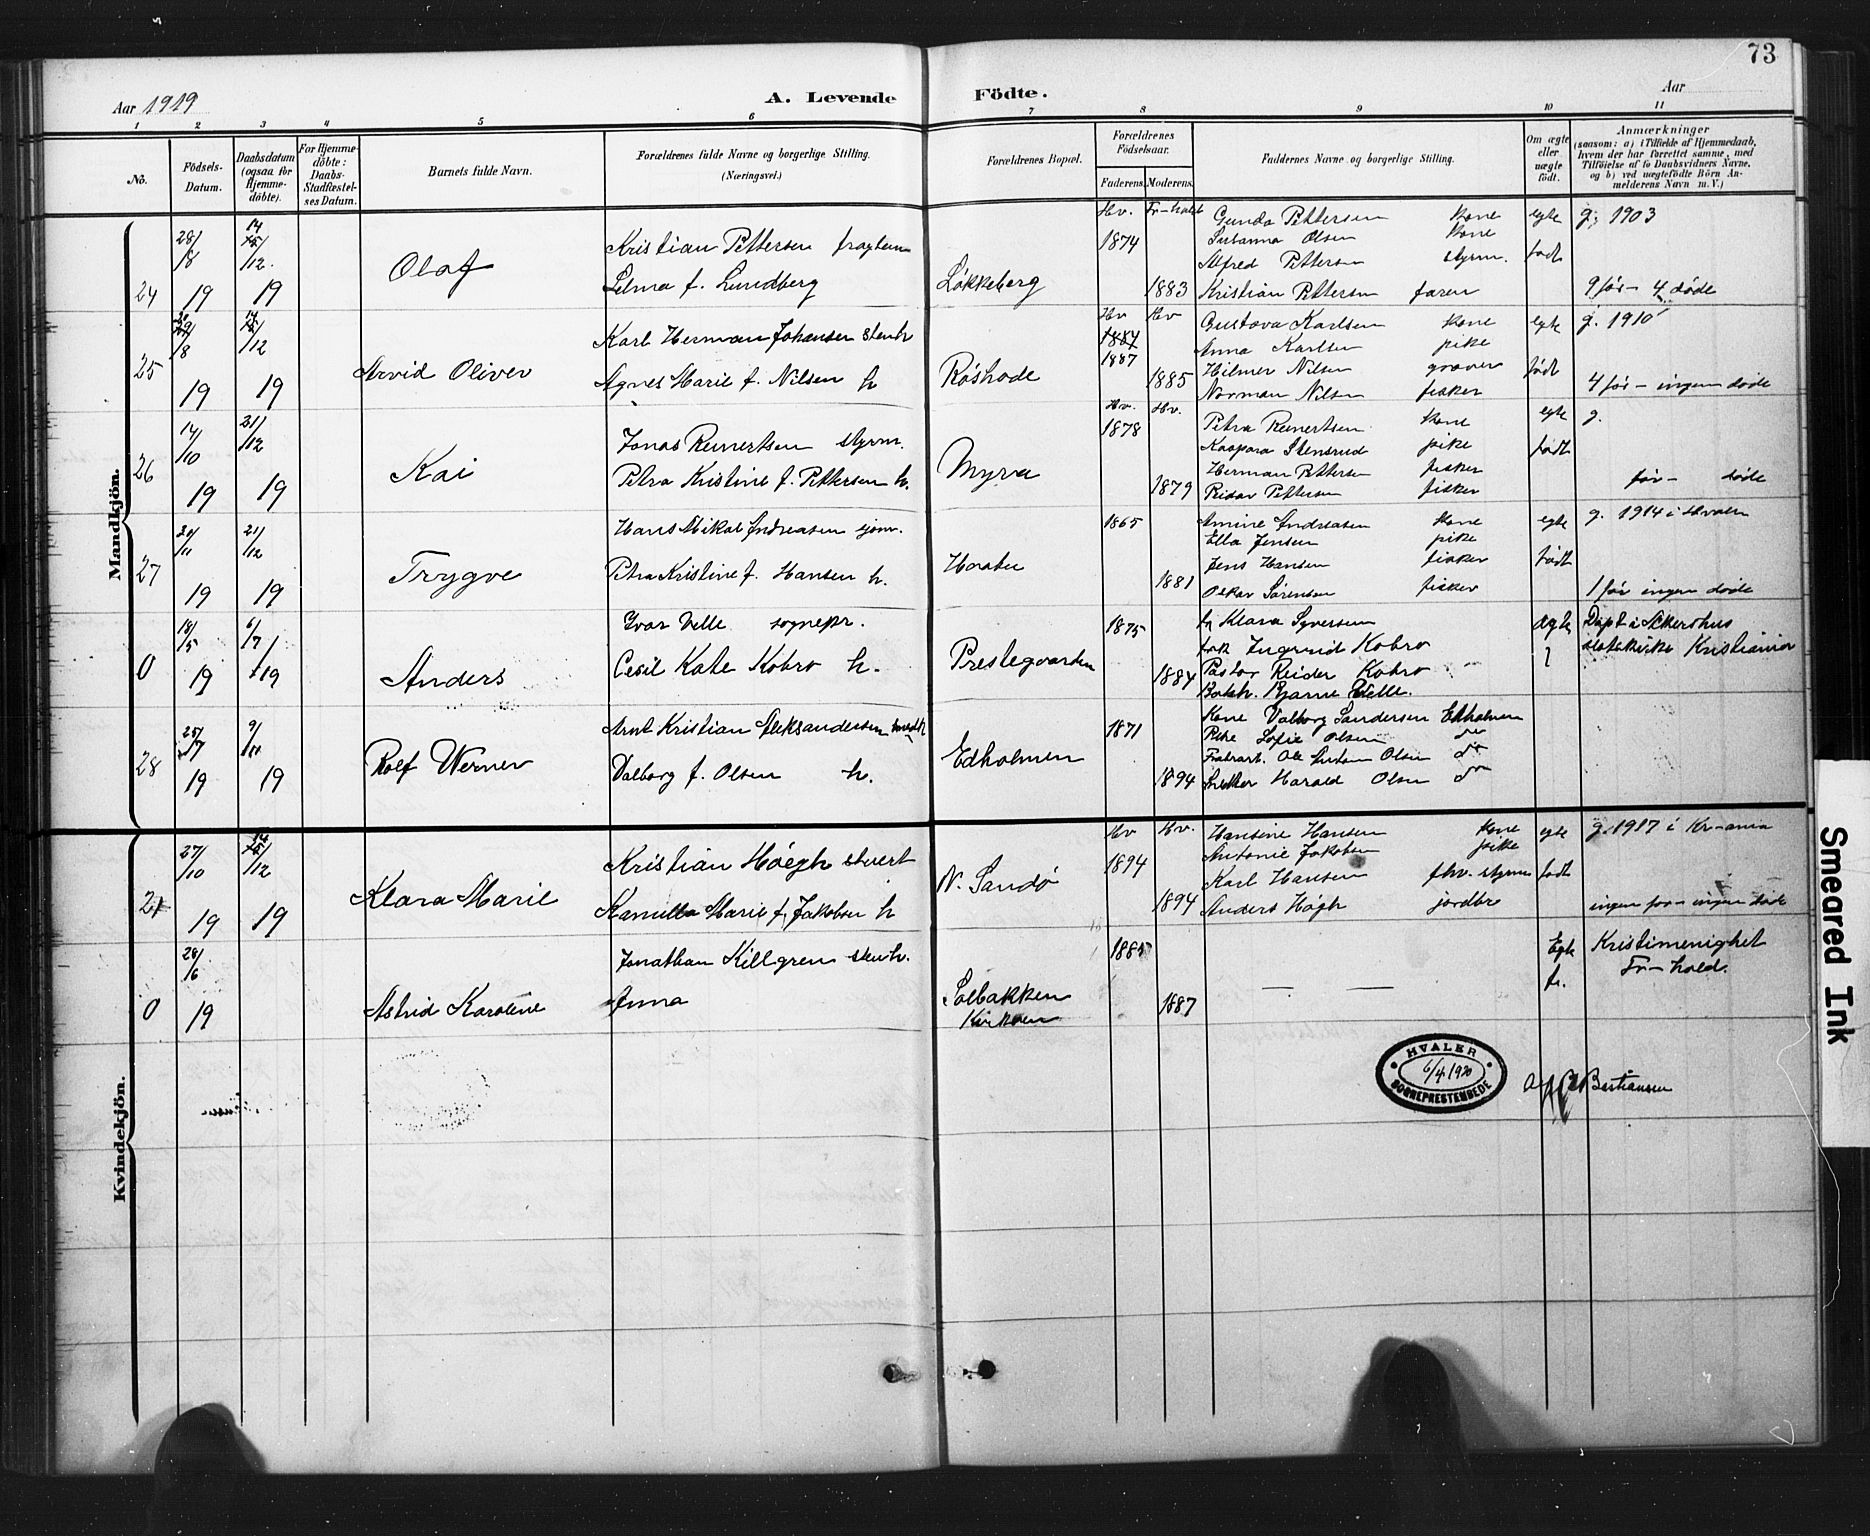 73
Aar 1919
A. Levende Födte.
Aar
1 2 3 4 5 6 7 8 9 10 11
No.
Födsels-Datum.
Daabsdatum (ogsaa for Hjemme-döbte).
For Hjemme-döbte: Daabs-Stadfæstel-ses Datum.
Barnets fulde Navn.
Forældrenes fulde Navne og borgerlige Stilling.
(Næringsvei.)
Forældrenes Bopæl.
Forældrenes Födselsaar.
Faderens. Moderens.
Faddernes Navne og borgerlige Stilling.
Om ægte eller uægte födt.
Anmærkninger
(saasom: a) i Tilfælde af Hjemmedaab, hvem der har forrettet samme, med Tilföielse af to Daabsvidners Navne, og b) ved uægtefödte Börn An-melderens Navn m. V.)
Mandkjön.
24 28/8 19 14/12 19 Olaf
Kristian Pettersen
Selma f. Lundberg
Løkkeberg
Hv. Fr-hald
1874
1883
Gunda Pettersen kone
Susanna Olsen kone
Alfred Pettersen styrm.
Kristian Pettersen faren
egte født
g. 1903
9 før - 4 døde
25 /8 19 14/12 19 Arvid Oliver
Karl Herman Johansen stenh
Agnes Marie f. Nilsen h
Røshode
Hv Hv
1884
1887
1885
Gustava Karlsen kone
Anna Karlsen pike
Hilmer Nilsen graver
Norman Nilsen fisker
egte født
g. 1910
4 før - ingen døde
26 14/10 19 21/12 19 Kai
Jonas Reinertsen styrm.
Petra Kristine f. Pettersen h.
Myra
Hv. Hv.
1878
1879
Petra Reinertsen kone
Kaspara Stensrud pike
Herman Pettersen fisker
Reidar Pettersen fisker
egte født
g.
før - døde
27 20/11 19 21/12 19 Trygve
Hans Mikal Andreasen sjøm.
Petra Kristine f. Hansen h.
1865
1881
Amine Andreasen kone
Ella Jensen pike
Jens Hansen fisker
Oskar Sørensen fisker
egte født
g. 1914 i Hvaler
1 før ingen døde
0 18/5 19 6/7 19 Anders
Ivar Velle sognepr.
Cecil Kate Kobro h.
Prestegaarden
1875
1884
fr Klara Syversen
frk Ingerid Kobro
Pastor Reidar Kobro
Bokh. Bjarne Velle.
ægte
Døpt i Akershus
slotskirke Kristiania
28 25/7 19 9/11 19 Rolf Werner
Arnt Kristian Aleksandersen
Valborg f. Olsen h.
Edholmen
1871
1894
Kone Valborg Sandersen Edholmen
Pike Sofie Olsen do
Harald Olsen do
Kvindekjön.
21 27/10 19 14/12 19 Klara Marie
Kristian Höegh stuert
Kamilla Marie f. Jakobsen h
N. Sandø
Hv Hv.
1894
1894
Hansine Hansen kone
Antonie Jakobsen pike
Karl Hansen fhv. styrm
Anders Høgh jordbr
egte født
g. 1917 i Kr-ania
ingen før - ingen døde
0 28/6 19 Astrid Karoline
Jonathan Killgren stenh.
Anna
Solbakken
Kirkøen
1885
1887
Egte
f.
Kristimenighet
Fr-hald.
HVALER
6/4 1920
SOGNEPRESTEMBEDE
Bastiansen
Smeared Ink